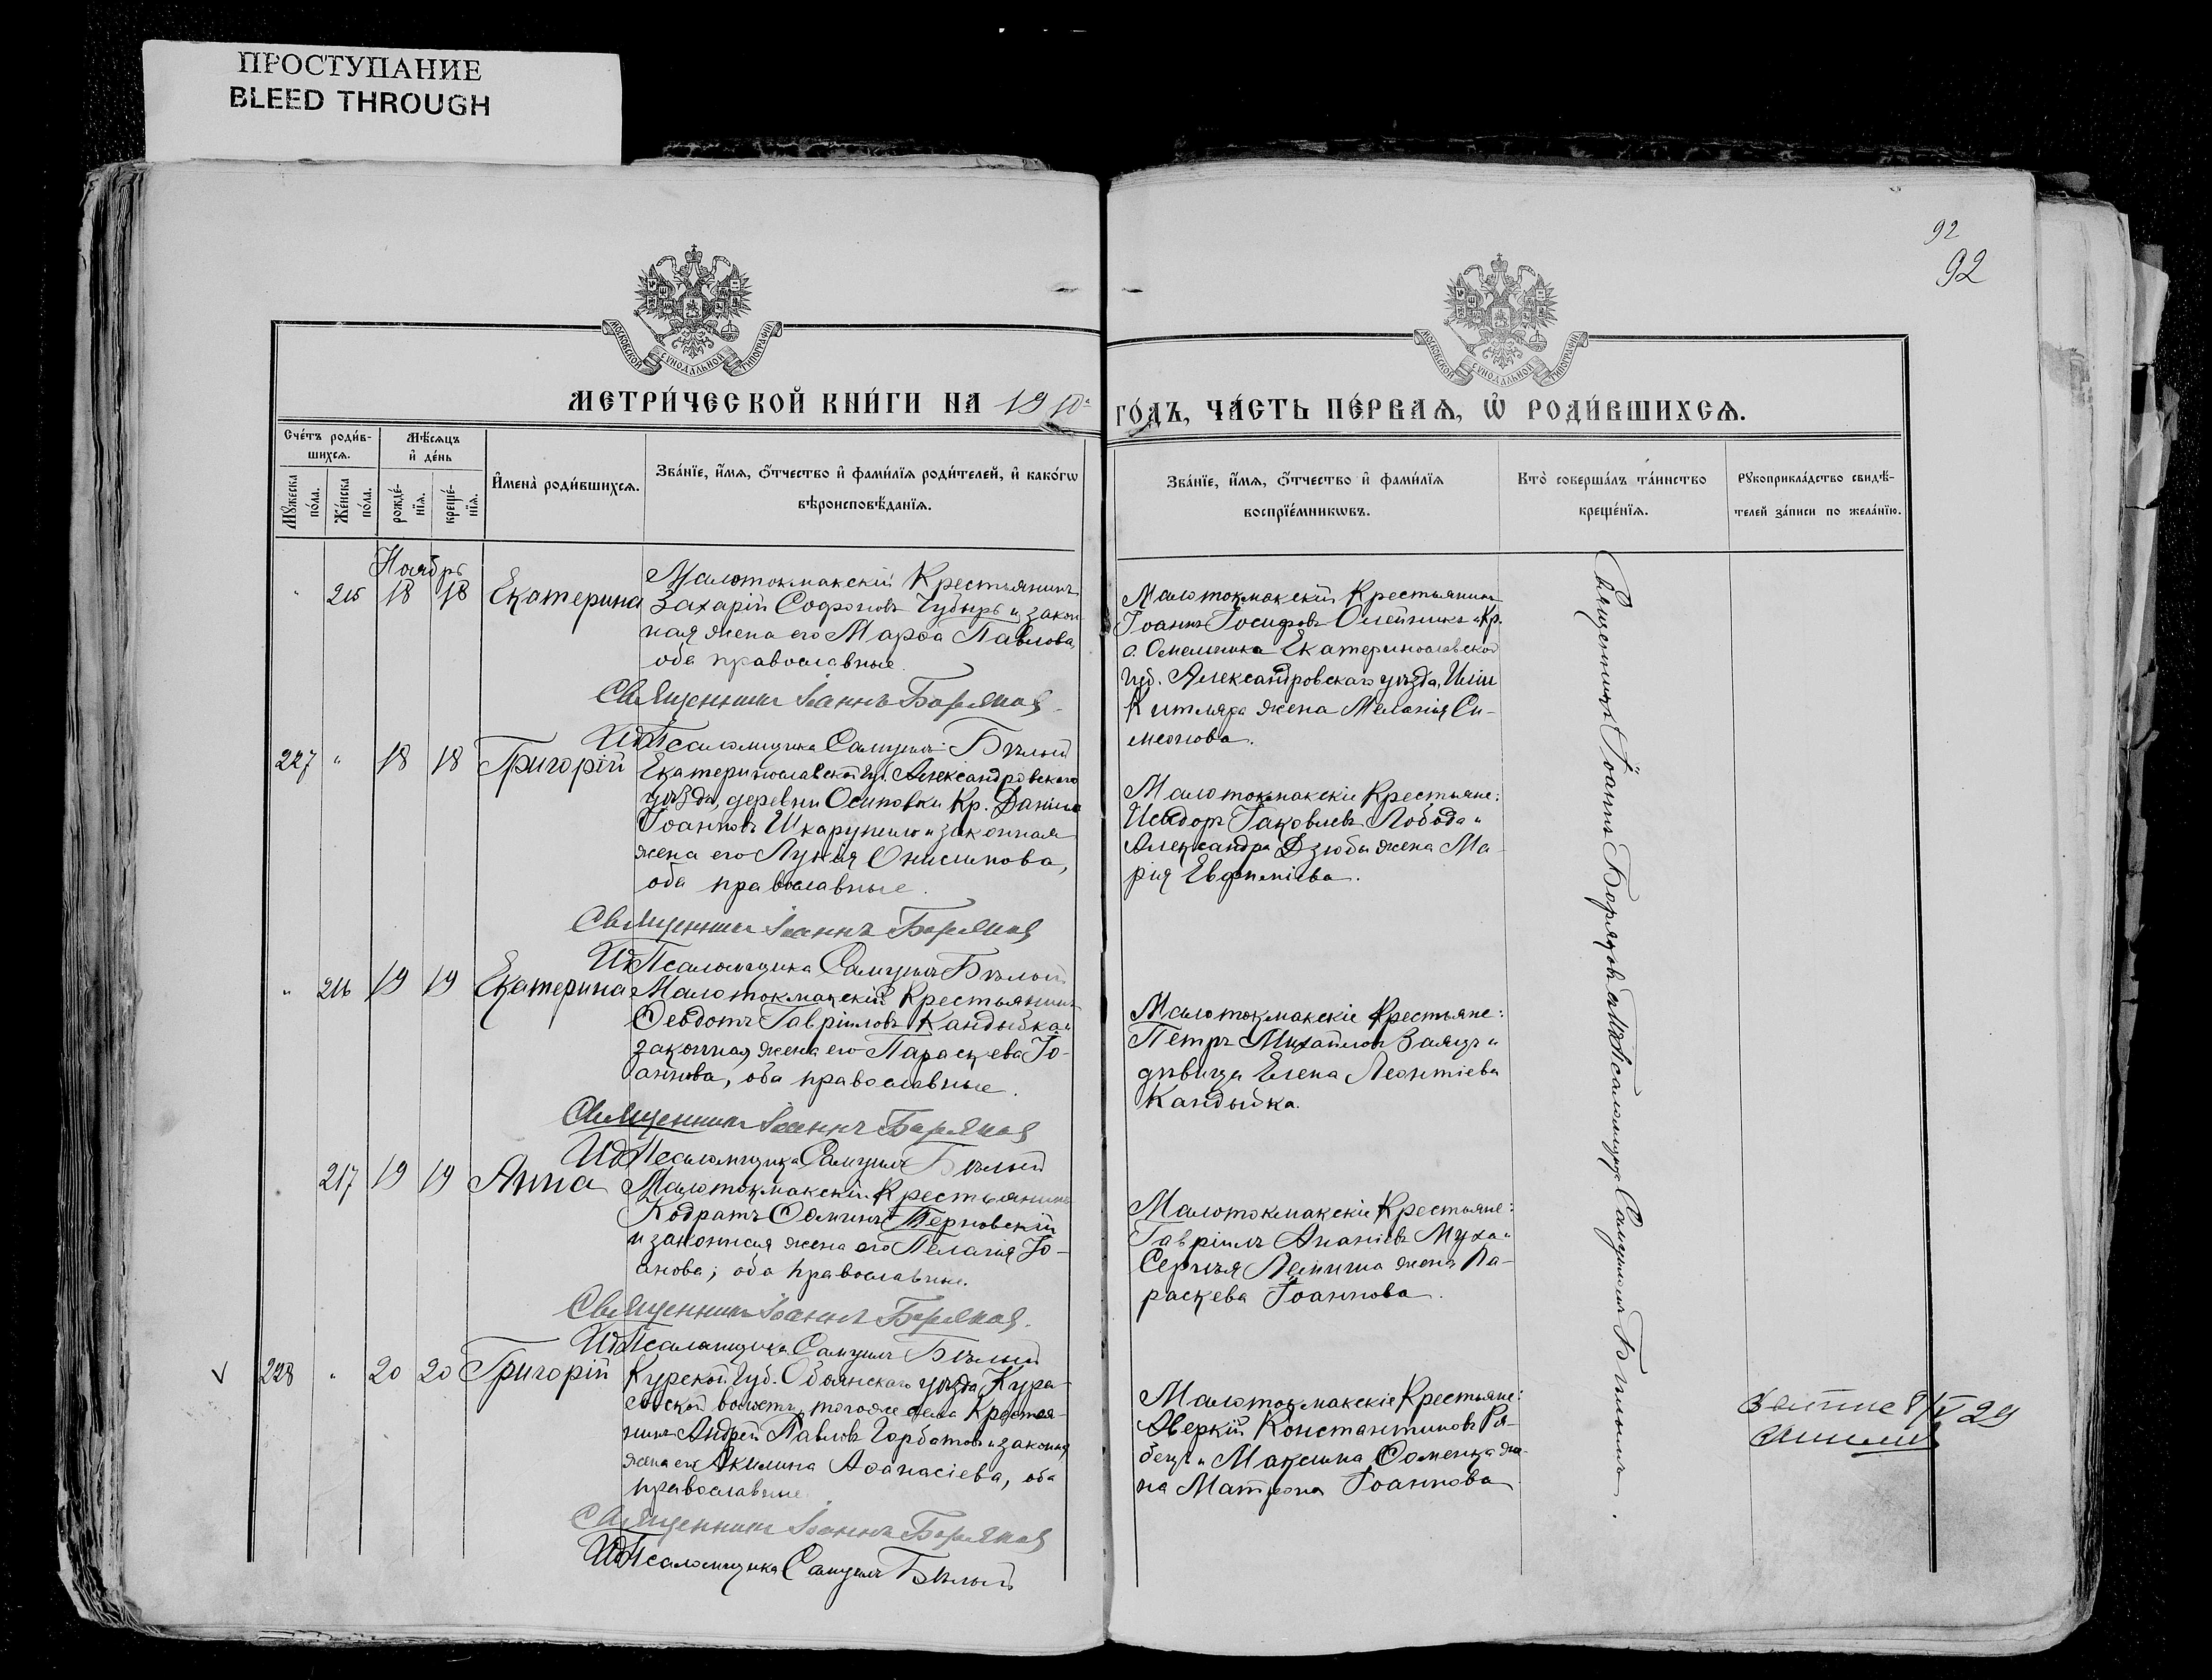 ПРОСТУПАНИЕ
BLEED THROUGH
92
92
МОСКОВСКОЙ СѴНОДАЛЬНОЙ ТИПОГРАФІИ
МОСКОВСКОЙ СѴНОДАЛЬНОЙ ТИПОГРАФІИ
МЕТРИ́ЧЕСКОЙ КНИ́ГИ НА 1910
ГО́ДЪ, ЧА́СТЬ ПЕ́РВАѦ, Ѡ҆ РОДИ́ВШИХСѦ.
Сче́тъ роди́в-
шихсѧ.
Мѣ́сѧцъ
и҆ де́нь
Мꙋ́жеска
по́ла.
Же́нска
по́ла.
рожде́-
нїѧ.
креще́-
нїѧ.
И҆мена̀ роди́вшихсѧ.
Зва́нїе, и҆́мѧ, ѻ҆́тчество и҆ фами́лїѧ роди́телей, и҆ како́гѡ
вѣроисповѣ́данїѧ.
Зва́нїе, и҆́мѧ, ѻ҆́тчество и҆ фами́лїѧ
воспрїе́мникѡвъ.
Кто̀ соверша́лъ та́инство
креще́нїѧ.
Рꙋкоприкла́дство свидѣ́-
телей за́писи по жела́нїю.
Ноябрь
" 215 18 18 Екатерина
Малотокмакскій Крестьянинъ
Захарій Софроновъ Чубырь и закон
ная жена его Марѳа Павлова,
оба православные.
Священникъ Іоаннъ Боряковъ
Ид Псаломщика Самуилъ Бѣлый
Малотокмакскій Крестьянинъ
Іоаннъ Іосифовъ Олейникъ и Кр.
с. Омельника Екатеринославской
губ. Александровскаго уѣзда, Иліи
Китляра жена Меланія Си-
меонова.
227 " 18 18 Григорій
Екатеринославской губ. Александровскаго
уѣзда, деревни Осиповки Кр. Даніилъ
Іоанновъ Шкарупило и законная
жена его Лукія Онисимова,
оба православные.
Священникъ Іоаннъ Боряковъ
Ид Псаломщика Самуилъ Бѣлый
Малотокмакскіе Крестьяне:
Исидоръ Іаковлевъ Лобода и
Александра Дзюбы жена Ма-
рія Евфиміева.
" 216 19 19 Екатерина
Малотокмакскій Крестьянинъ
Ѳеодотъ Гавріиловъ Кандыйка и
законная жена его Параскева Іо-
аннова, оба православные.
Священникъ Іоаннъ Боряковъ
Ид Псаломщика Самуилъ Бѣлый
Малотокмакскіе Крестьяне:
Петръ Михайловъ Заяцъ и
дѣвица Елена Леонтіева
Кандыйка.
217 19 19 Анна
Малотокмакскій Крестьянинъ
Кодратъ Ѳоминъ Терновскій
и законная жена его Пелагія Іо-
анова; оба православные.
Священникъ Іоаннъ Боряковъ
Ид Псаломщика Самуилъ Бѣлый
Малотокмакскіе Крестьяне:
Гавріилъ Ананіевъ Муха и
Сергѣя Лемиша жена Па-
раскева Іоаннова.
228 " 20 20 Григорій
Курской губ. Обоянскаго уѣзда, Кура-
совской волости, тогоже села Крестья-
нинъ Андрей Павловъ Горбатовъ и законная
жена его Акилина Аѳанасіева, оба
православные.
Священникъ Іоаннъ Боряковъ
Ид Псаломщика Самуилъ Бѣлый
Малотокмакскіе Крестьяне:
Аверкій Константиновъ Ря-
бецъ и Максима Ѳоменка же-
на Матрона Іоаннова
Священникъ Іоаннъ Боряковъ Псаломщикъ Самуилъ Бѣлый.
8/V 29